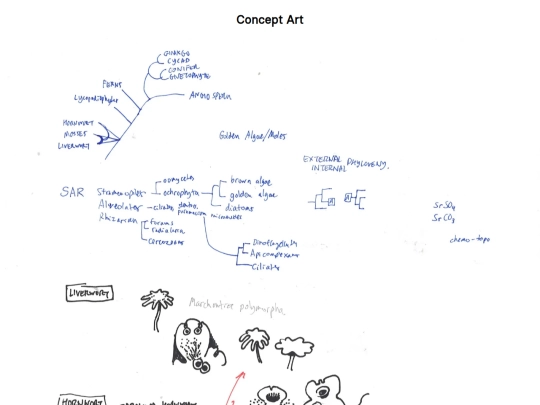 Concept Art
GINKGO
CYCAD
CONIFER
GNETOPHYTE
FERNS
ANGIOSPERM
Lycopodiophytes
HORNWORT
MOSSES
LIVERWORT
Golden Algae/Molds
EXTERNAL PHYLOGENY,
INTERNAL
SAR
Stramenopiles
oomycetes
ochrophyta
brown algae
golden algae
diatoms
Alveolates
ciliates
paramecium
Rhizarian
forams
radiolaria
cercozoans
Dinoflagellata
Apicomplexans
Ciliates
SrSO4
SrCO3
chemo-topo
LIVERWORT
Marchantia polymorpha
HORNWORT